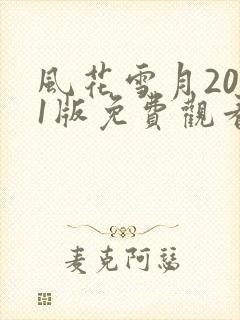 風花雪月20
1版免費觀看
麦克阿瑟